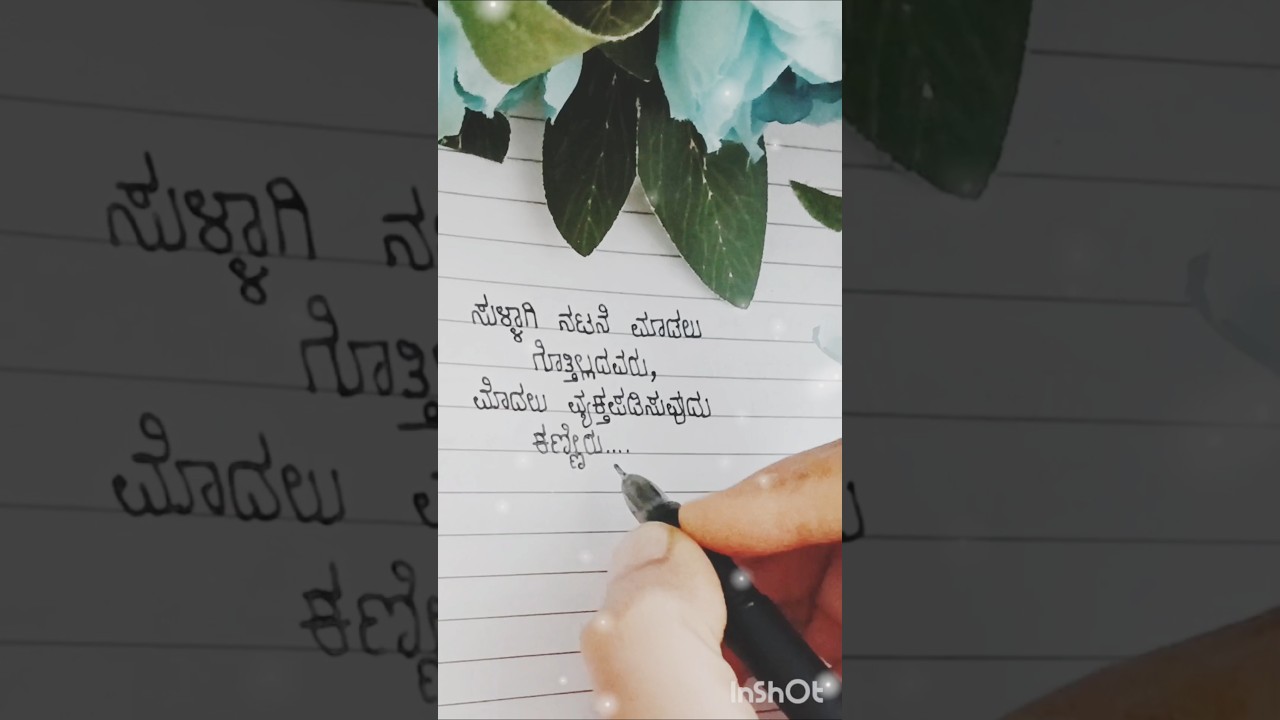 ಸುಳ್ಳಾಗಿ ನಟನೆ ಮಾಡಲು
ಗೊತ್ತಿಲ್ಲದವರು,
ಮೊದಲು ವ್ಯಕ್ತಪಡಿಸುವುದು
ಕಣ್ಣೀರು....
InShOt